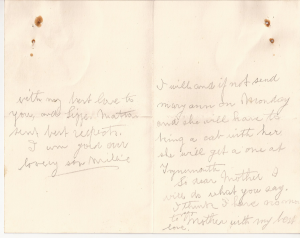 with my best love to
you, and
sent best respects.
I am your own
loving son Willie
I will and if not send
mary ann on Monday
and she will have to
bring a cab with her
she will get a one at
Tynemouth.
So dear Mother I
will do what you say.
I think I have
to
Mother with my best
love